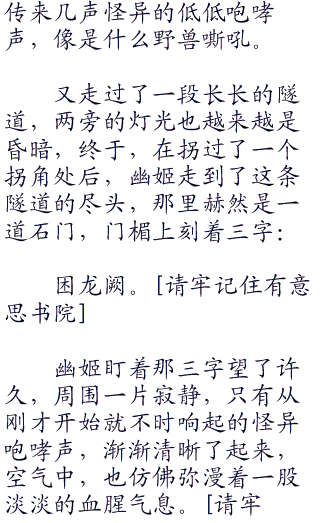 传来几声怪异的低低咆哮
声，像是什么野兽嘶吼。
又走过了一段长长的隧
道，两旁的灯光也越来越是
昏暗，终于，在拐过了一个
拐角处后，幽姬走到了这条
隧道的尽头，那里赫然是一
道石门，门楣上刻着三字：
困龙阙。[请牢记住有意
思书院]
幽姬盯着那三字望了许
久，周围一片寂静，只有从
刚才开始就不时响起的怪异
咆哮声，渐渐清晰了起来，
空气中，也仿佛弥漫着一股
淡淡的血腥气息。[请牢